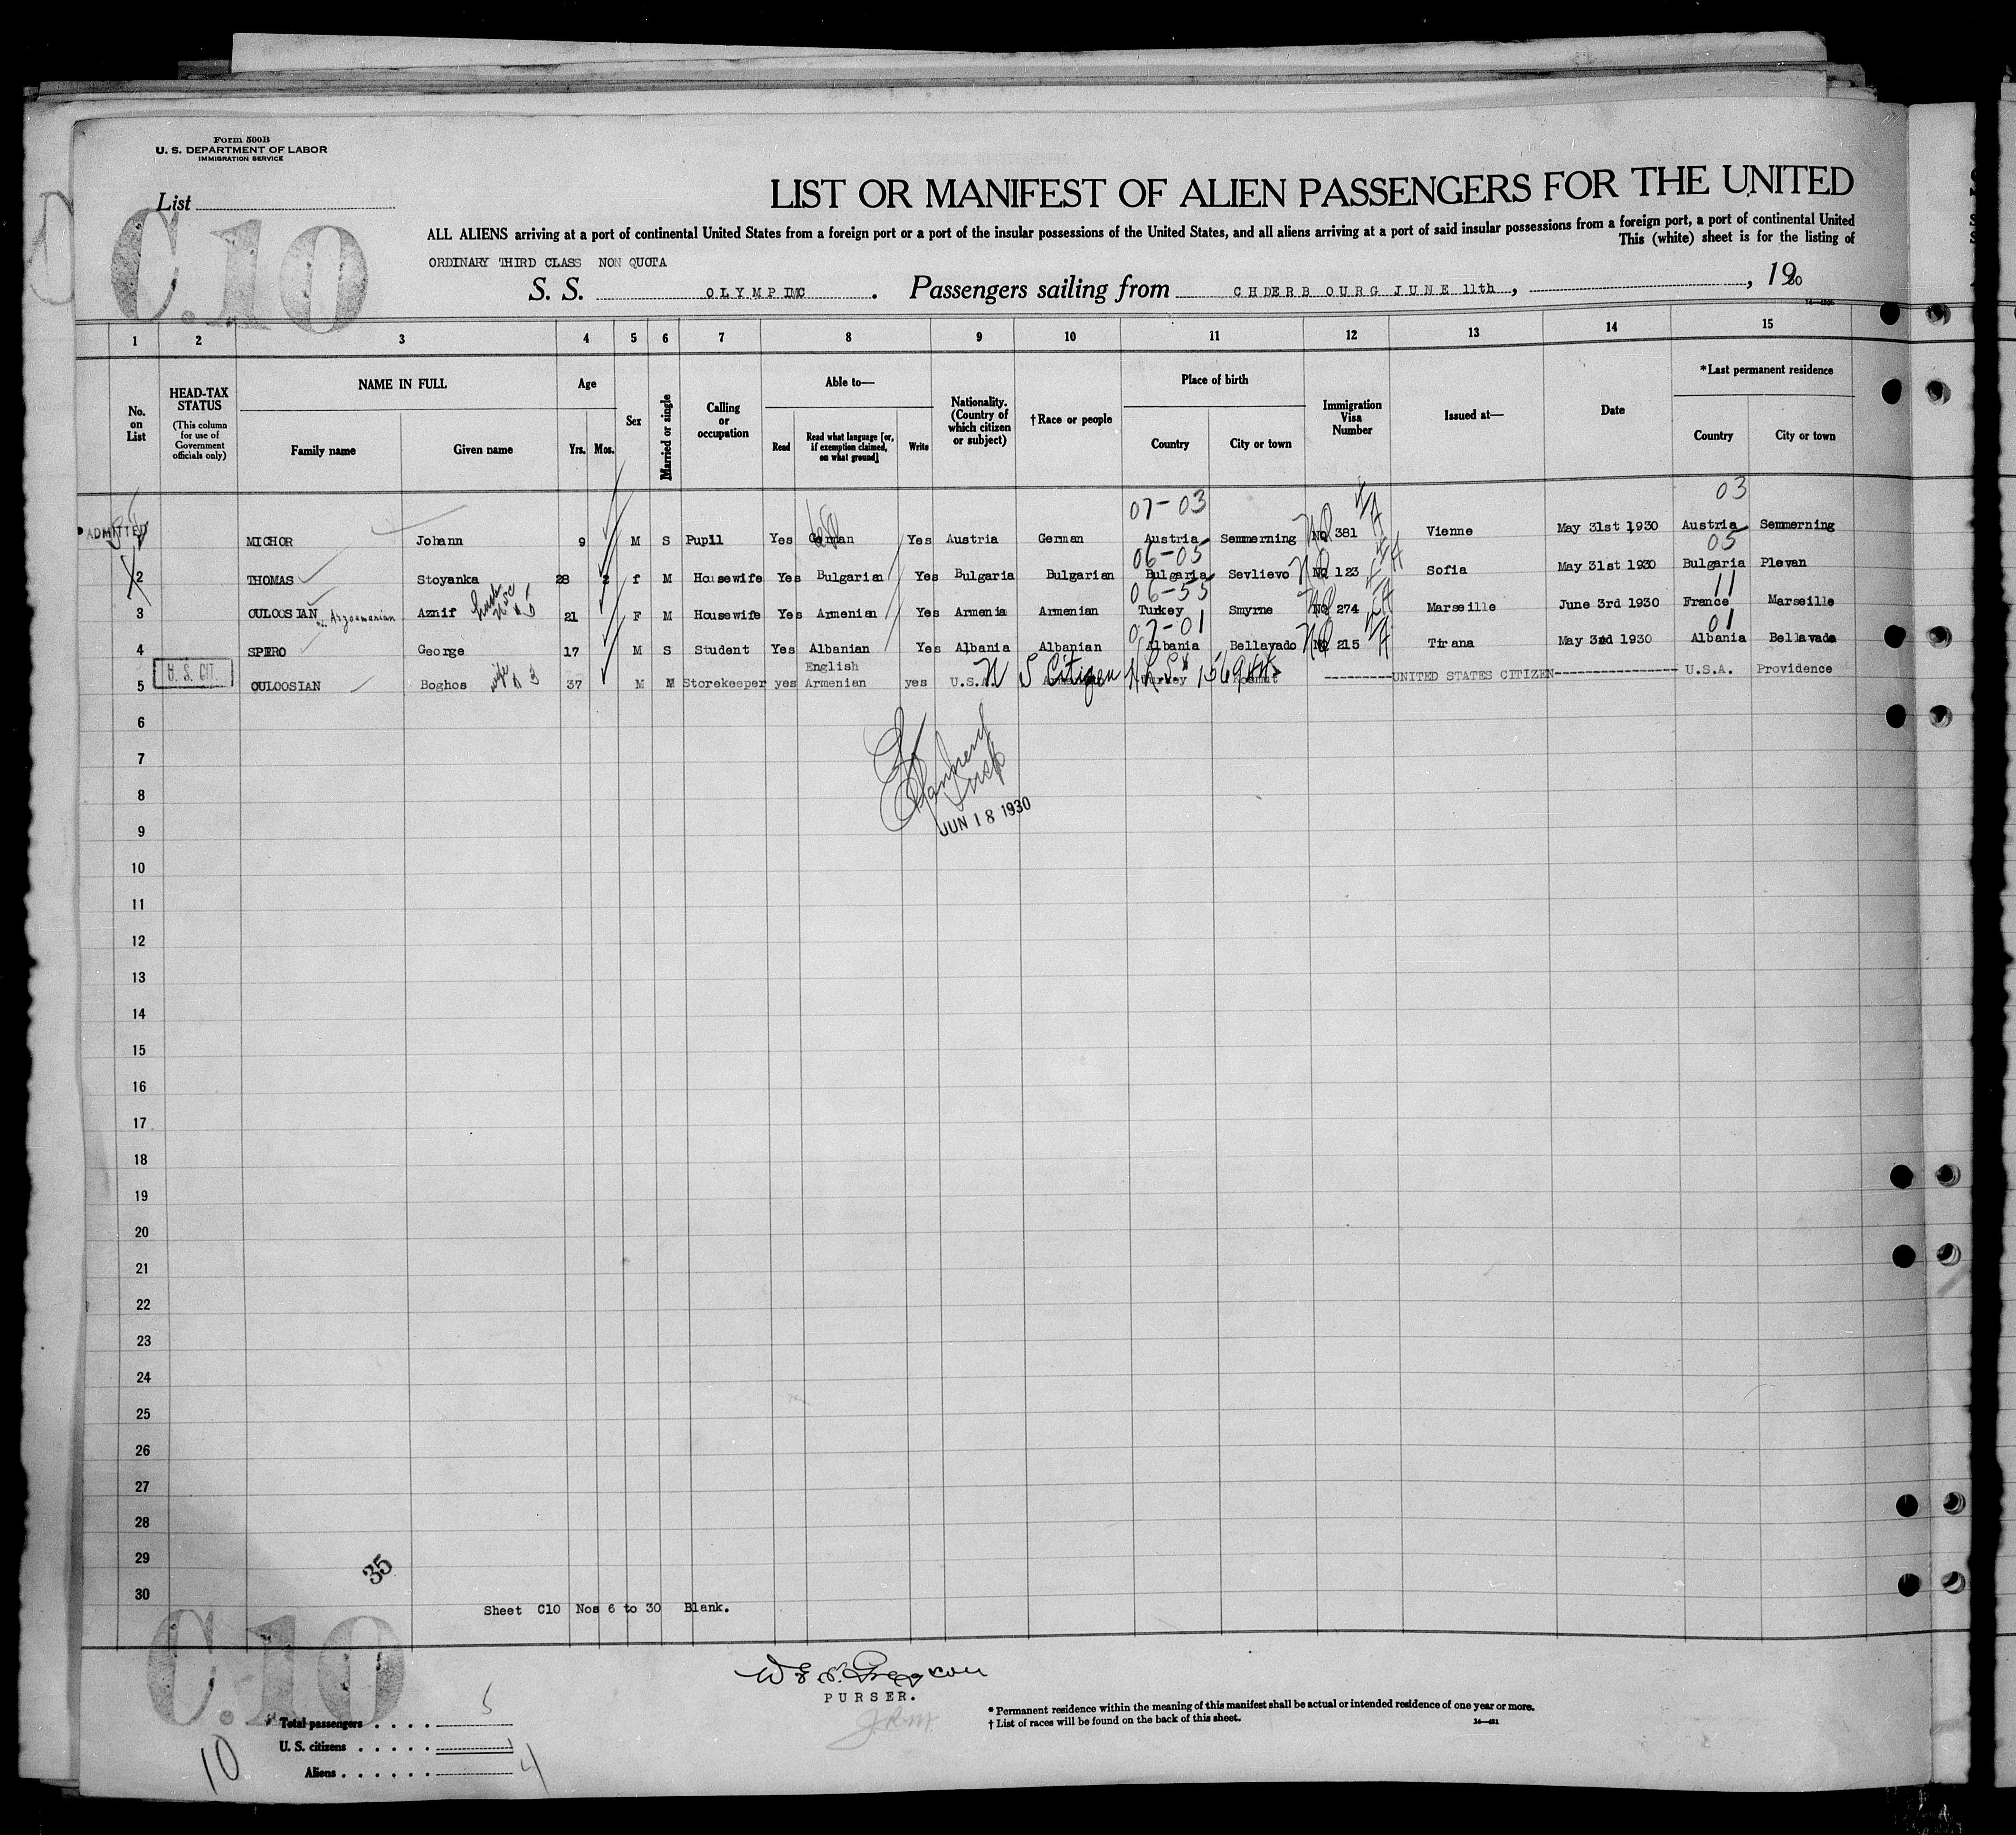 Form 500B
U. S. DEPARTMENT OF LABOR
IMMIGRATION SERVICE
List
C.10
LIST OR MANIFEST OF ALIEN PASSENGERS FOR THE UNITED
ALL ALIENS arriving at a port of continental United States from a foreign port or a port of the insular possessions of the United States, and all aliens arriving at a port of said insular possessions from a foreign port, a port of continental United
This (white) sheet is for the listing of
ORDINARY THIRD CLASS NON QUOTA
S. S. OLYMPIMC . Passengers sailing from CHDERB OURG JUNE 11th , , 19
1 2 3 4 5 6 7 8 9 10 11 12 13 14 15
No. on List
HEAD-TAX STATUS
(This column for use of Government officials only)
NAME IN FULL
Family name Given name
Age
Yrs. Mos.
Sex
Married or single
Calling or occupation
Able to—
Read Read what language [or, if exemption claimed, on what ground] Write
Nationality. (Country of which citizen or subject)
†Race or people
Place of birth
Country City or town
Immigration Visa Number
Issued at—
Date
*Last permanent residence
Country City or town
07-03 03
ADMITTED MICHOR Johann 9 M S Pupil Yes German Yes Austria German Austria Semmerning No 381 Vienne May 31st 1930 Austria Semmerning
06-05 05
2 THOMAS Stoyanka 28 2 f M Housewife Yes Bulgarian Yes Bulgaria Bulgarian Bulgaria Sevlievo No 123 Sofia May 31st 1930 Bulgaria Plevan
06-55 11
3 OULOOSIAN Arzoumanian Aznif 21 F M Housewife Yes Armenian Yes Armenia Armenian Turkey Smyrne No 274 Marseille June 3rd 1930 France Marseille
07-01 01
4 SPERO George 17 M S Student Yes Albanian Yes Albania Albanian Albania Bellavado No 215 Tirana May 3nd 1930 Albania Bellavada
U. S. CIT.
English
5 OULOOSIAN Boghos wife 3 37 M M Storekeeper yes Armenian yes U.S.A. U S Citizen UNITED STATES CITIZEN U.S.A. Providence
6
7
8
JUN 18 1930
9
10
11
12
13
14
15
16
17
18
19
20
21
22
23
24
25
26
27
28
29
35
30
Sheet C10 Nos 6 to 30 Blank.
C.10
PURSER.
* Permanent residence within the meaning of this manifest shall be actual or intended residence of one year or more.
† List of races will be found on the back of this sheet.
Total passengers . . . . 5
U. S. citizens . . . . . 1
Aliens . . . . . . 4
10